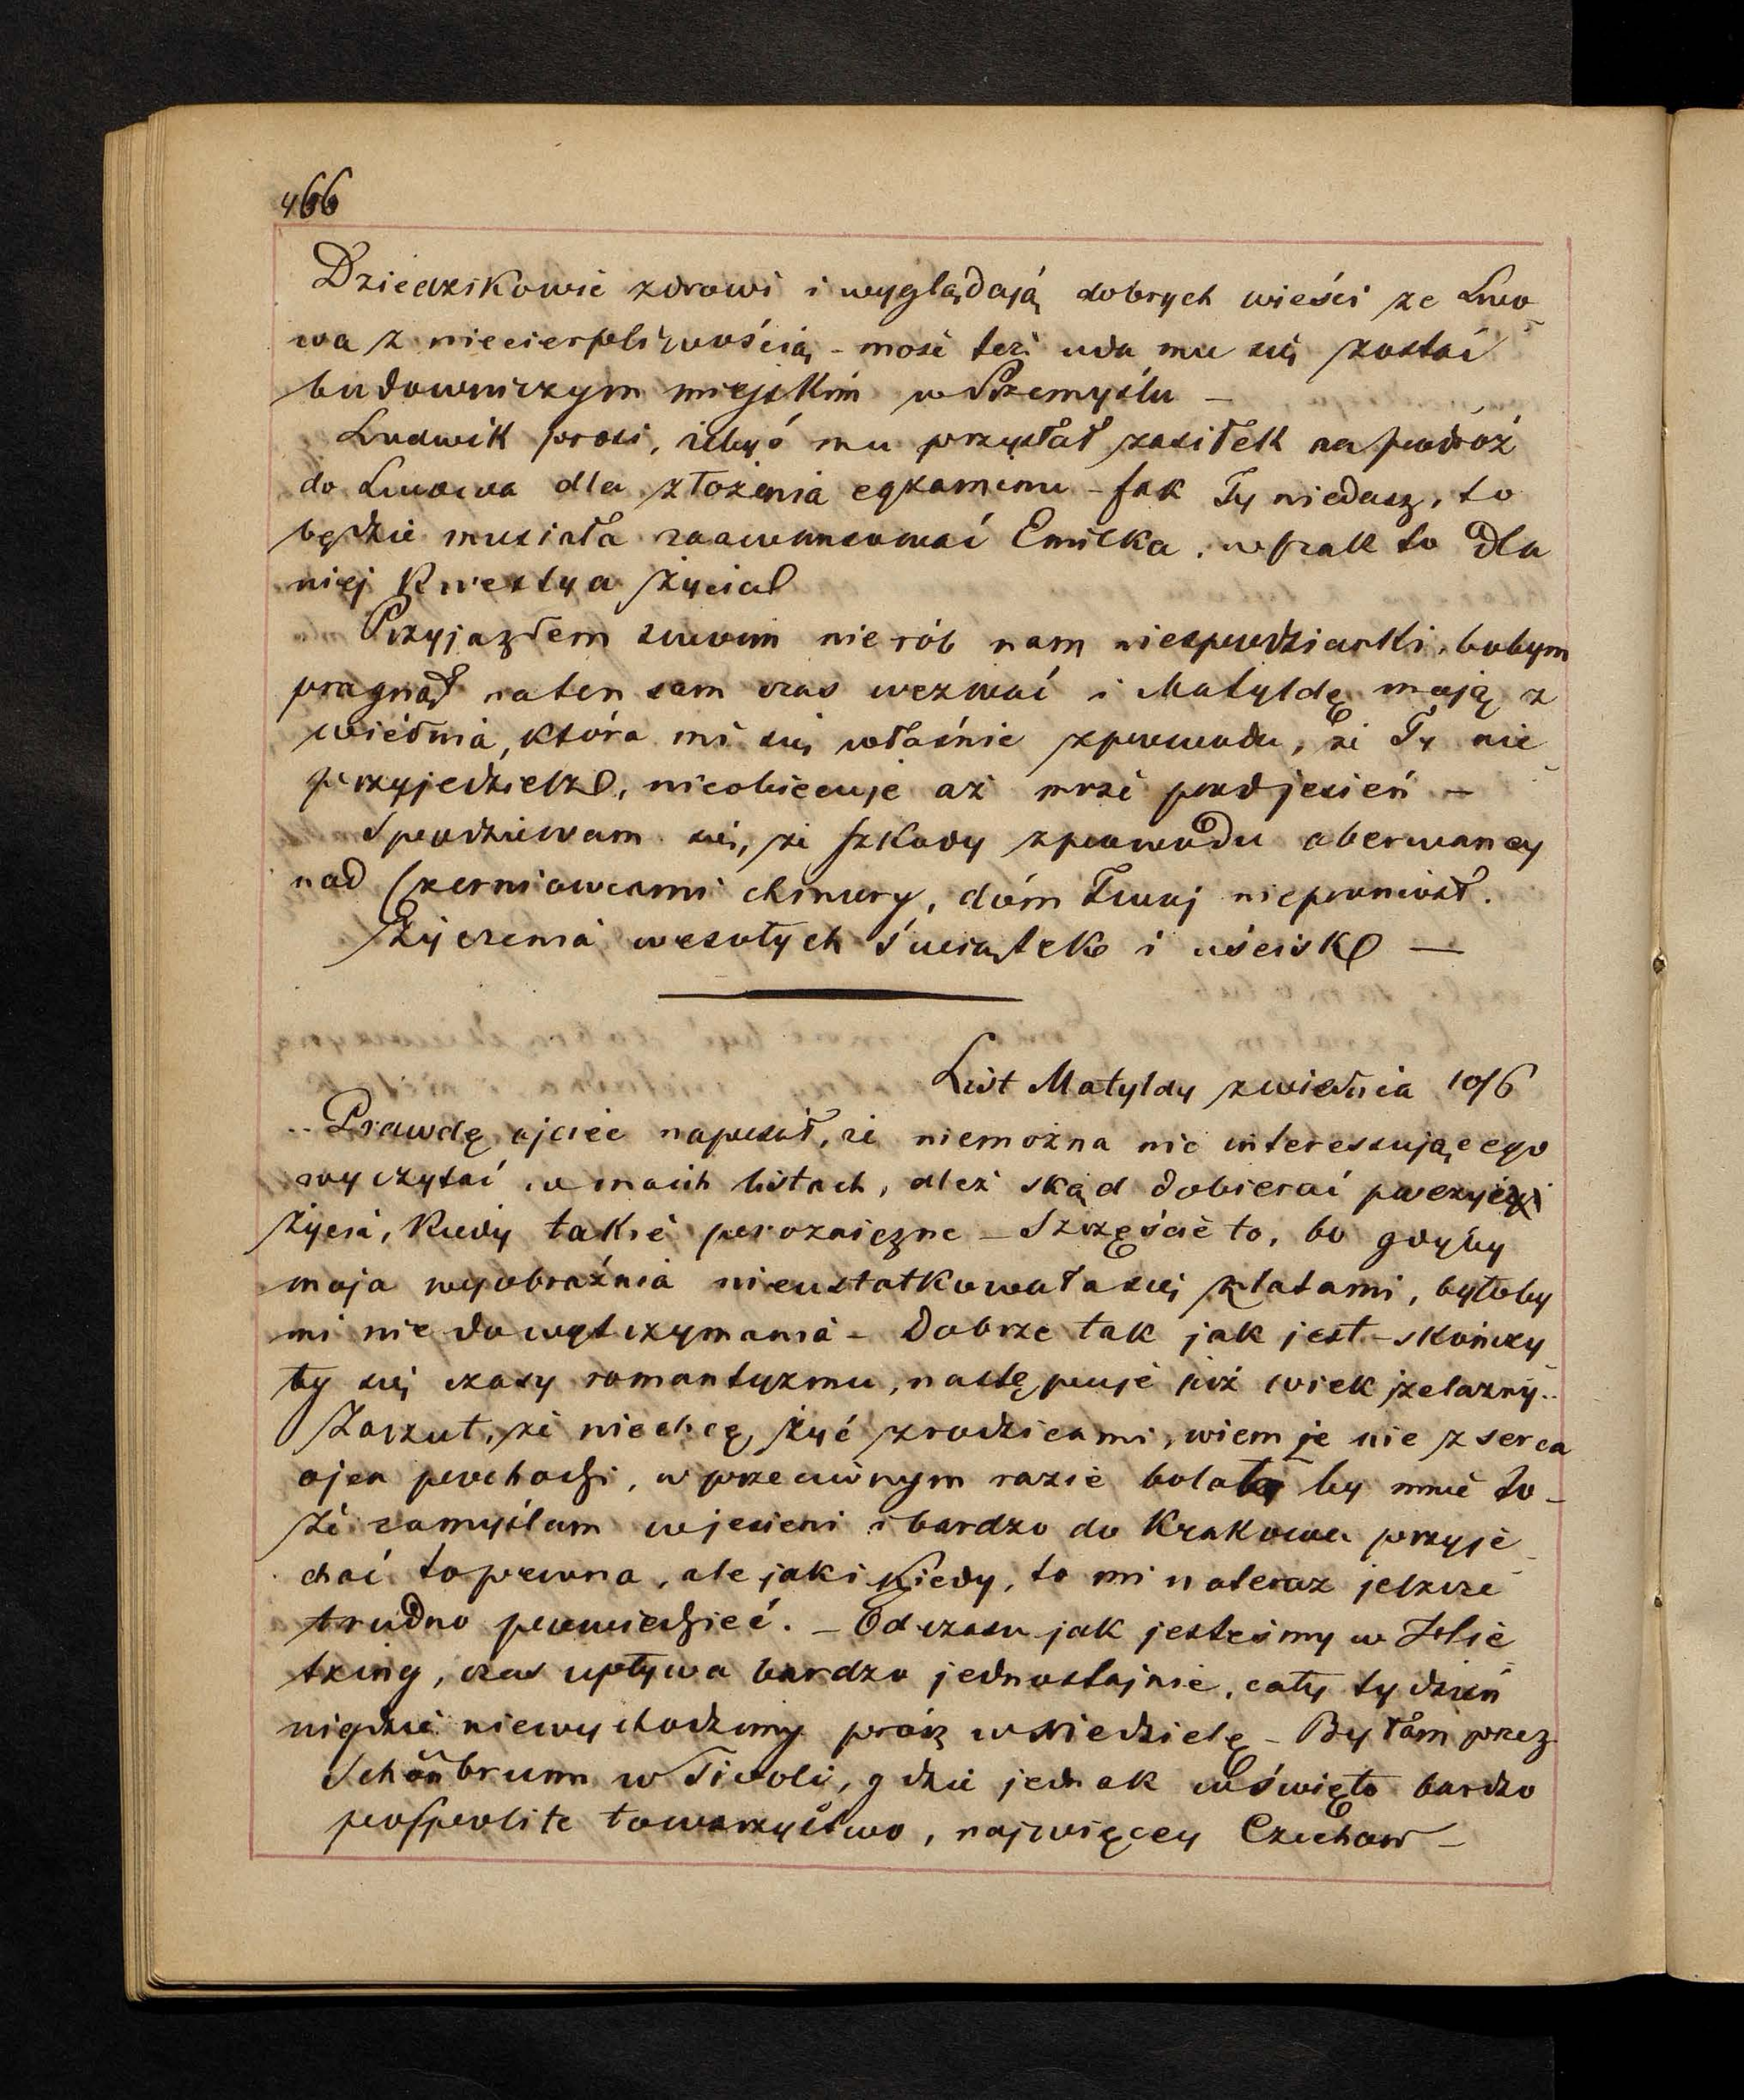 466
Dziedzikowie zdrowi i wyglądają dobrych wieści ze Lwo-
wa z niecierpliwością - może też uda mu się zostać
budowniczym miejskim w Przemyślu -
Ludwik prosi, żebyś mu przysłał zasiłek na podróż
do Lwowa dla złożenia egzaminu - Jak Ty niedasz, to
będzie musiała zaawansować Emilka, wszak to dla
niej kwestya życia
Przyjazdem swoim nie rób nam niespodzianki, bobym
pragnął naten sam czas wezwać i Matyldę moją z
wiednia, która mi się właśnie zpowodu, że Ty nie
przyjedziesz, nieobiecuje aż mrze podjesień -
Spodziewam się, że szkody zpowodu oberwaney
nad Czerniowcami chmury, dóm Twoj nieponiosł.
Życzenia wesołych świątek i uścisk —
List Matyldy zwiednia 10/6
.. Prawdę ojciec napisał, że niemożna nic interessującego
wyczytać w moich listach, ależ skąd dobierać poezyi
życia, kiedy takie prozaiczne - Szczęście to, bo gdyby
moja wyobraźnia nieustatkowała się zlatami, byłoby
mi nie do wytrzymania - Dobrze tak jak jest - skończy-
ły się czasy romantyzmu, następuje już wiek żelazny..
Zarzut, że niechcę żyć zrodzicami, wiem że nie z serca
ojca pochodzi, w przeciwnym razie bolało by mnie to -
że zamyślam wjesieni i bardzo do Krakowa przyje-
chać to pewna, ale jak i kiedy, to mi nateraz jeszcze
trudno powiedzieć. - Od czasu jak jesteśmy w Hie-
tzing, czas upływa bardzo jednostajnie, cały tydzień
nigdzie niewychodzimy próz w Niedzielę - Byłam przez
Schönbrunn w Tivoli, gdzie jednak wświęto bardzo
pospolite towarzystwo, najwięcey Czechow -